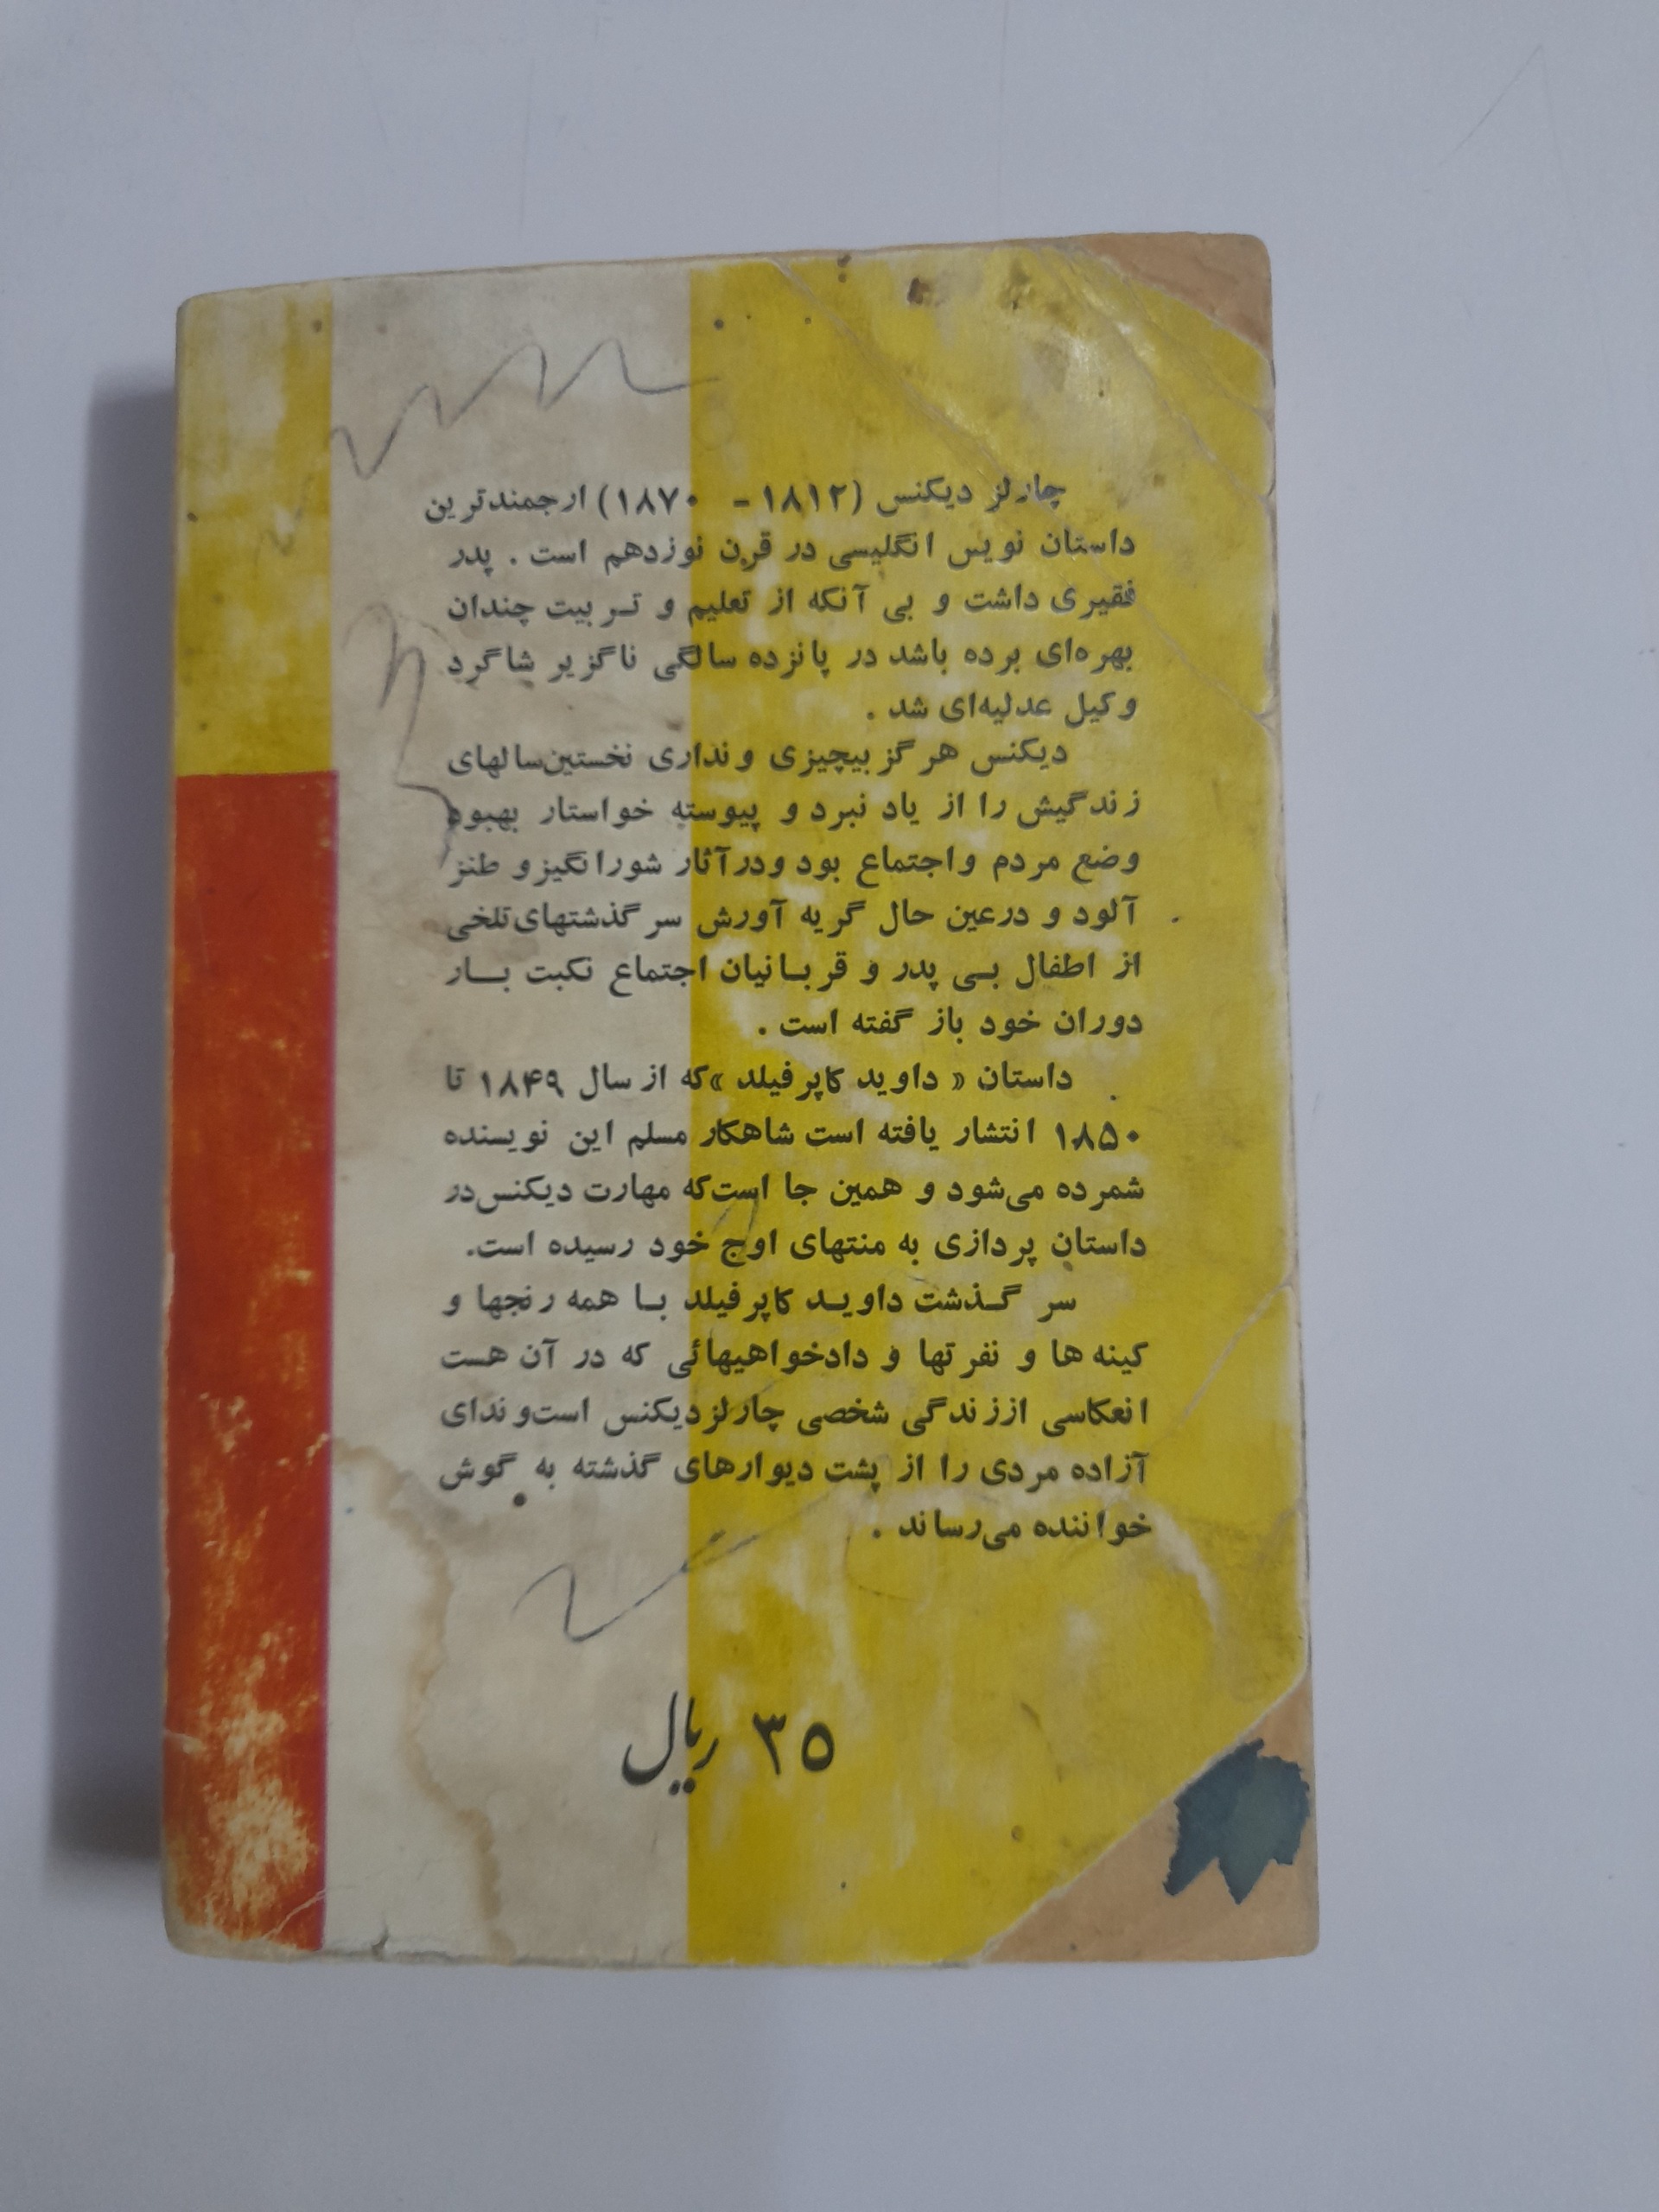 چارلز دیکنس (۱۸۱۲ - ۱۸۷۰) ارجمندترین
داستان نویس انگلیسی در قرن نوزدهم است . پدر
فقیری داشت و بی آنکه از تعلیم و تربیت چندان
بهره‌ای برده باشد در پانزده سالگی ناگزیر شاگرد
وکیل عدلیه‌ای شد .
دیکنس هرگز بیچیزی و نداری نخستین سالهای
زندگیش را از یاد نبرد و پیوسته خواستار بهبود
وضع مردم و اجتماع بود و در آثار شورانگیز و طنز
آلود و درعین حال گریه آورش سرگذشتهای تلخی
از اطفال بی پدر و قربانیان اجتماع نکبت بار
دوران خود باز گفته است .
داستان « داوید کاپرفیلد » که از سال ۱۸۴۹ تا
۱۸۵۰ انتشار یافته است شاهکار مسلم این نویسنده
شمرده می‌شود و همین جا است که مهارت دیکنس در
داستان پردازی به منتهای اوج خود رسیده است.
سر گذشت داوید کاپرفیلد با همه رنجها و
کینه ها و نفرتها و دادخواهیهائی که در آن هست
انعکاسی از زندگی شخصی چارلز دیکنس است و ندای
آزاده مردی را از پشت دیوارهای گذشته به گوش
خواننده می‌رساند .
۳۵ ریال